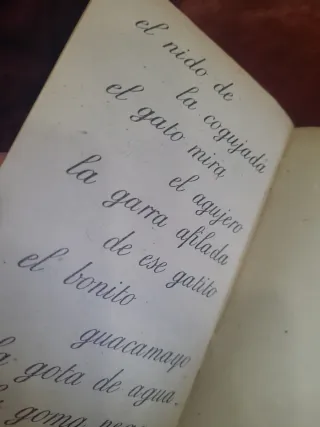 el nido de
la cogujada
el gato mira
el agujero
la garra afilada
de ese gatito
el bonito
guacamayo
gota de agua.
goma